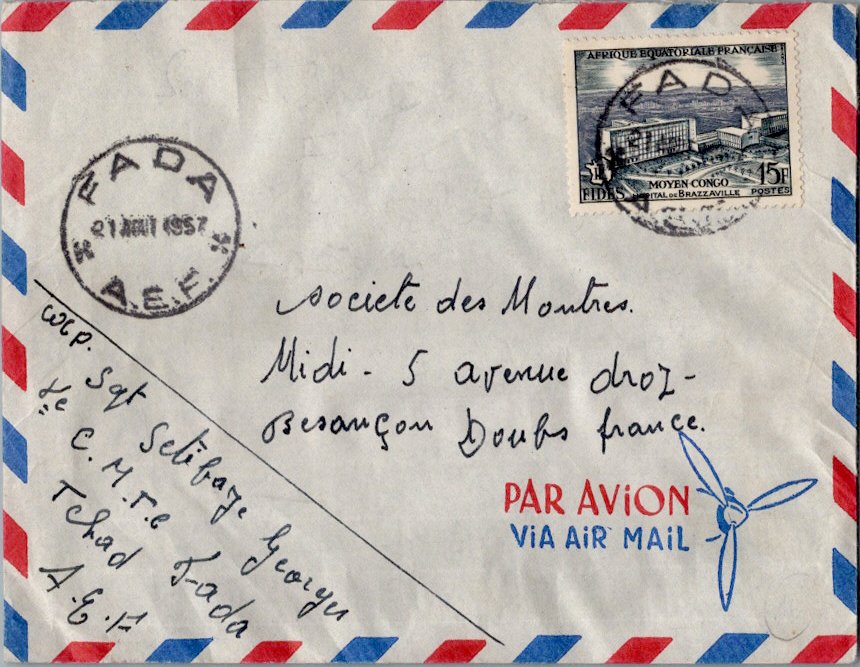 AFRIQUE EQUATORIALE FRANÇAISE
MOYEN CONGO
15F
FIDES
HÔPITAL DE BRAZZAVILLE
POSTES
FADA
FADA
21 AOUT 1957
A.E.F.
Societe des Montres.
Midi - 5 avenue droz -
Besançon Doubs france.
PAR AViON
ViA AiR MAiL
Sgt Georges
C.M.
Tchad Fada
A.E.F